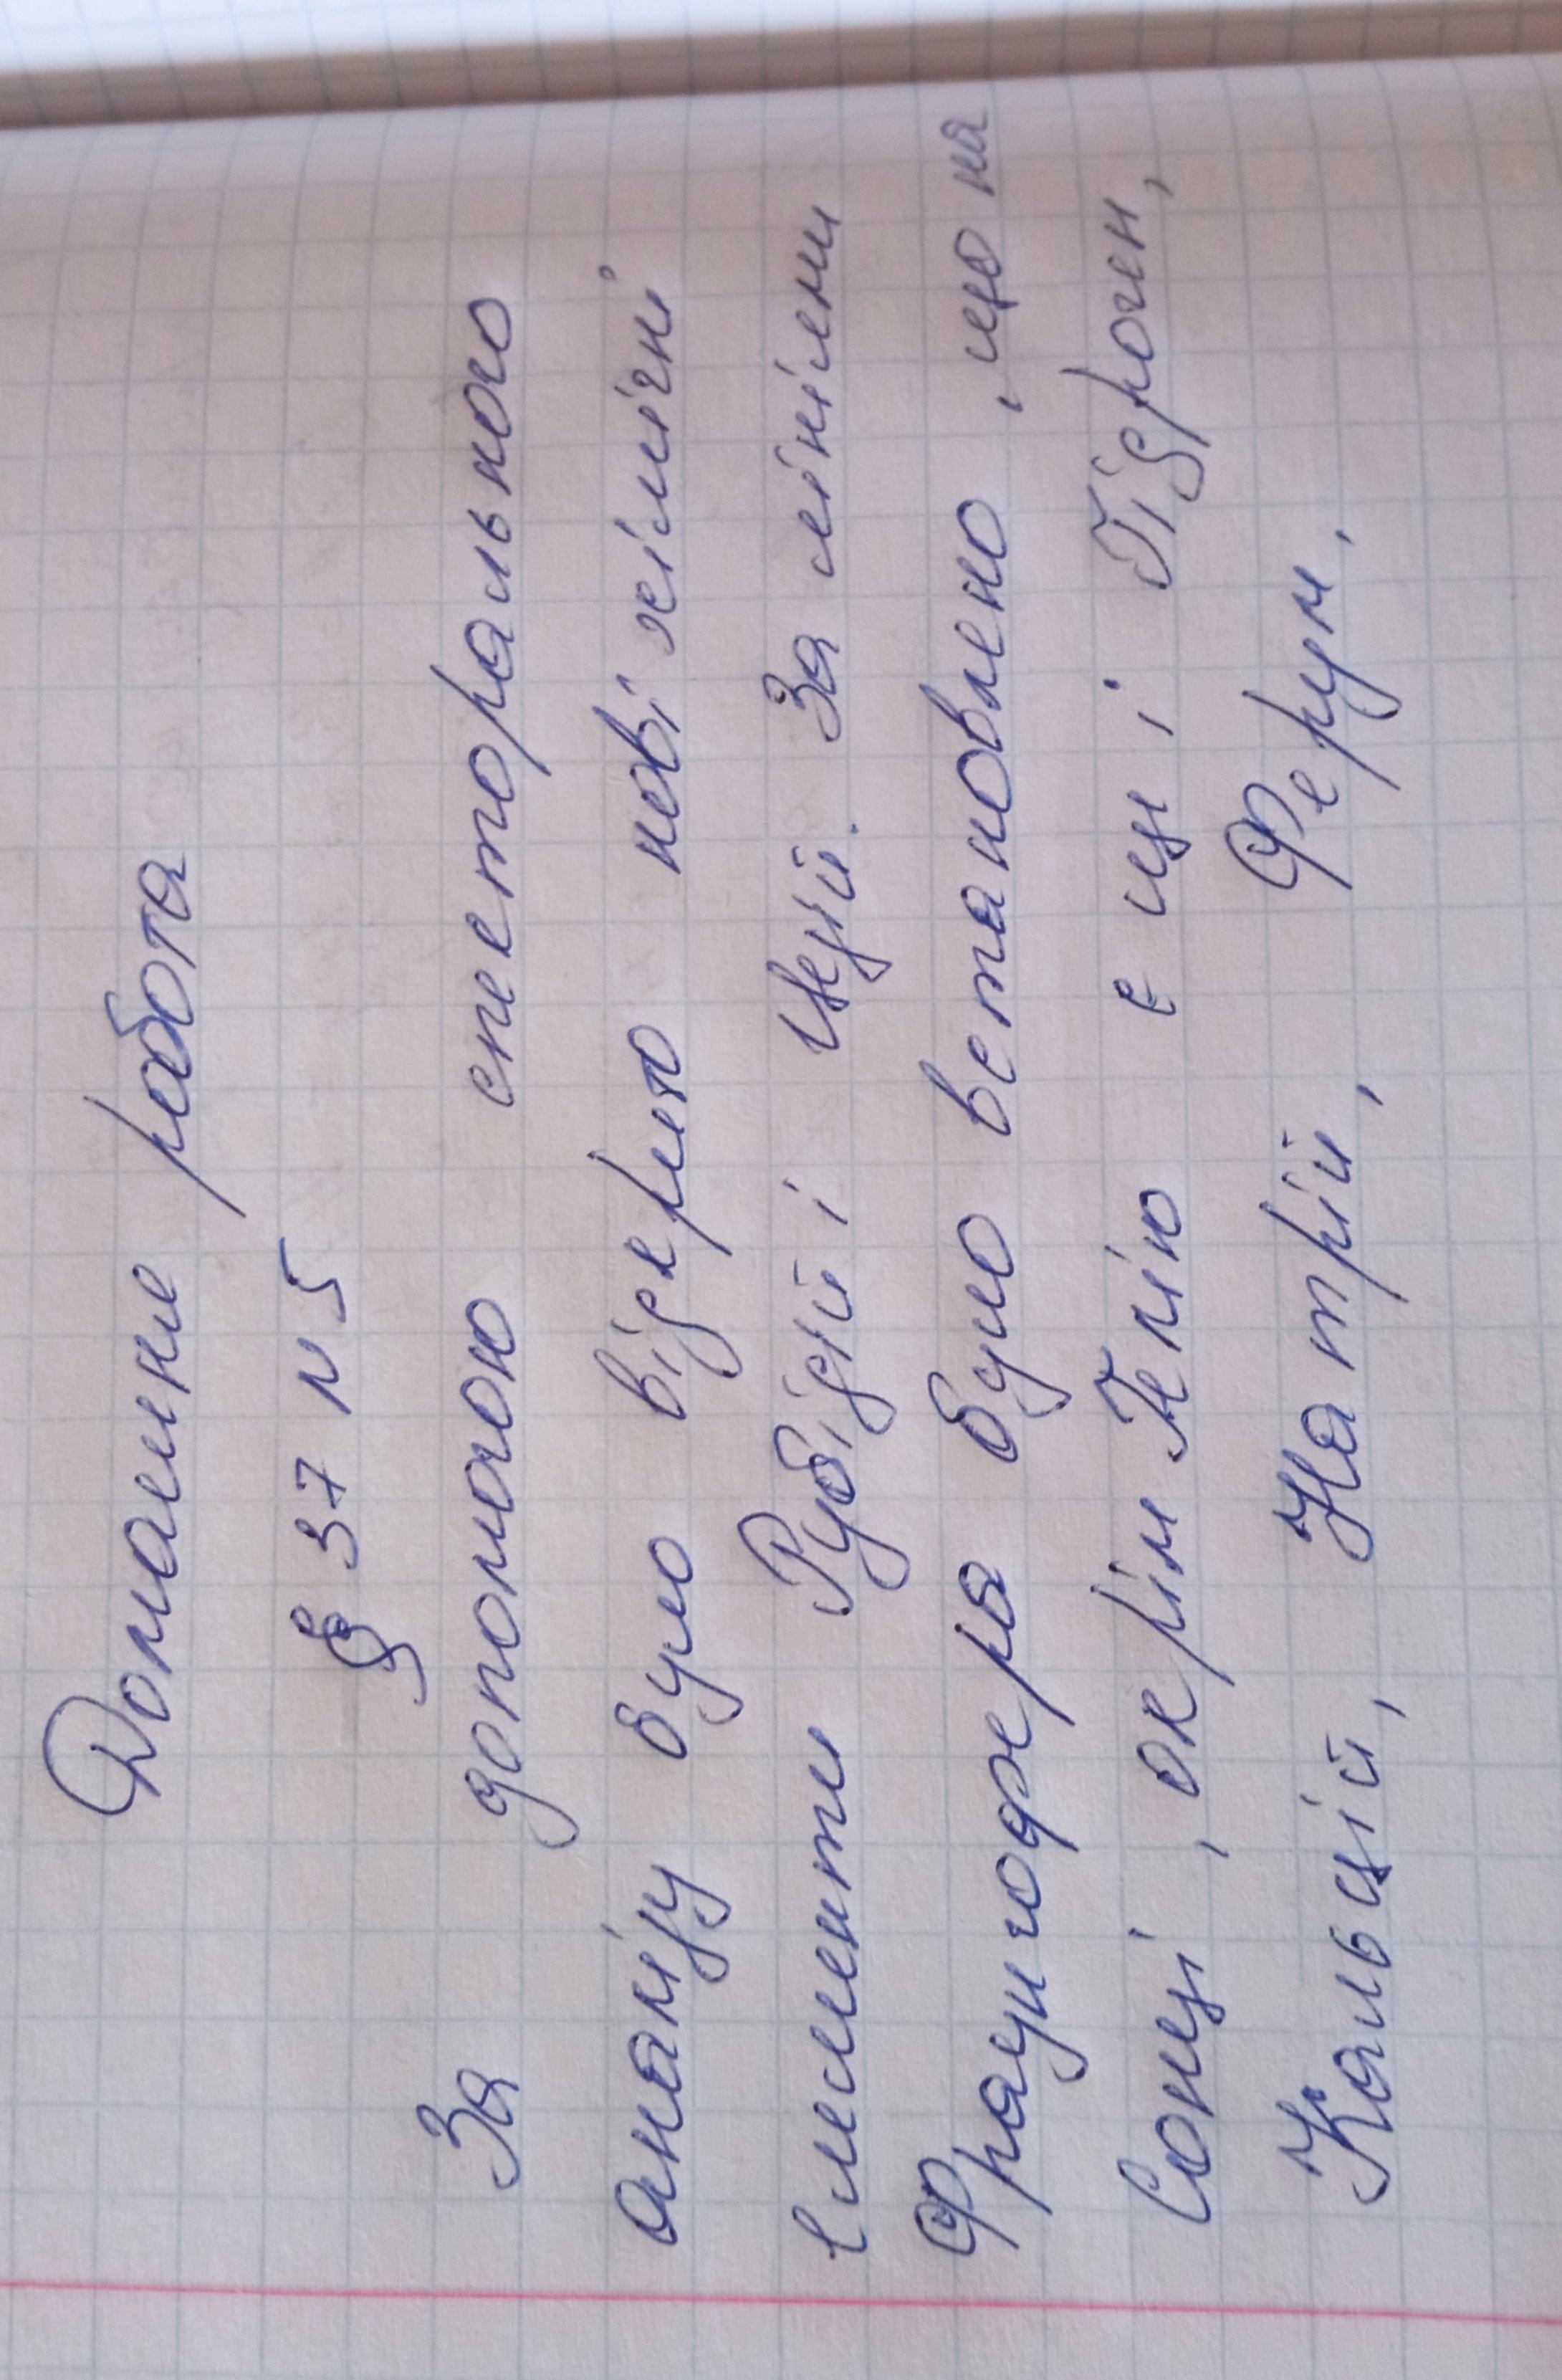 Домашне работа
§ 37 N 5
За допомогою спекторального
аналізу було відкрито нові хімічні
елементи Рубідій і Цезій. За лініями
Фраунгофера було встановлено, що на
Сонці, окрім Гелію е ще і Гідроген,
Кальцій, Натрій, Ферум.